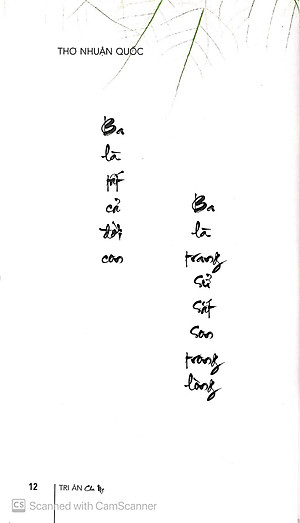 THƠ NHUẬN QUỐC
Ba
là
tất
cả
đời
con
Ba
là
trang
sử
sắt
son
trong
lòng
12 TRI ÂN Cha Mẹ
CS Scanned with CamScanner